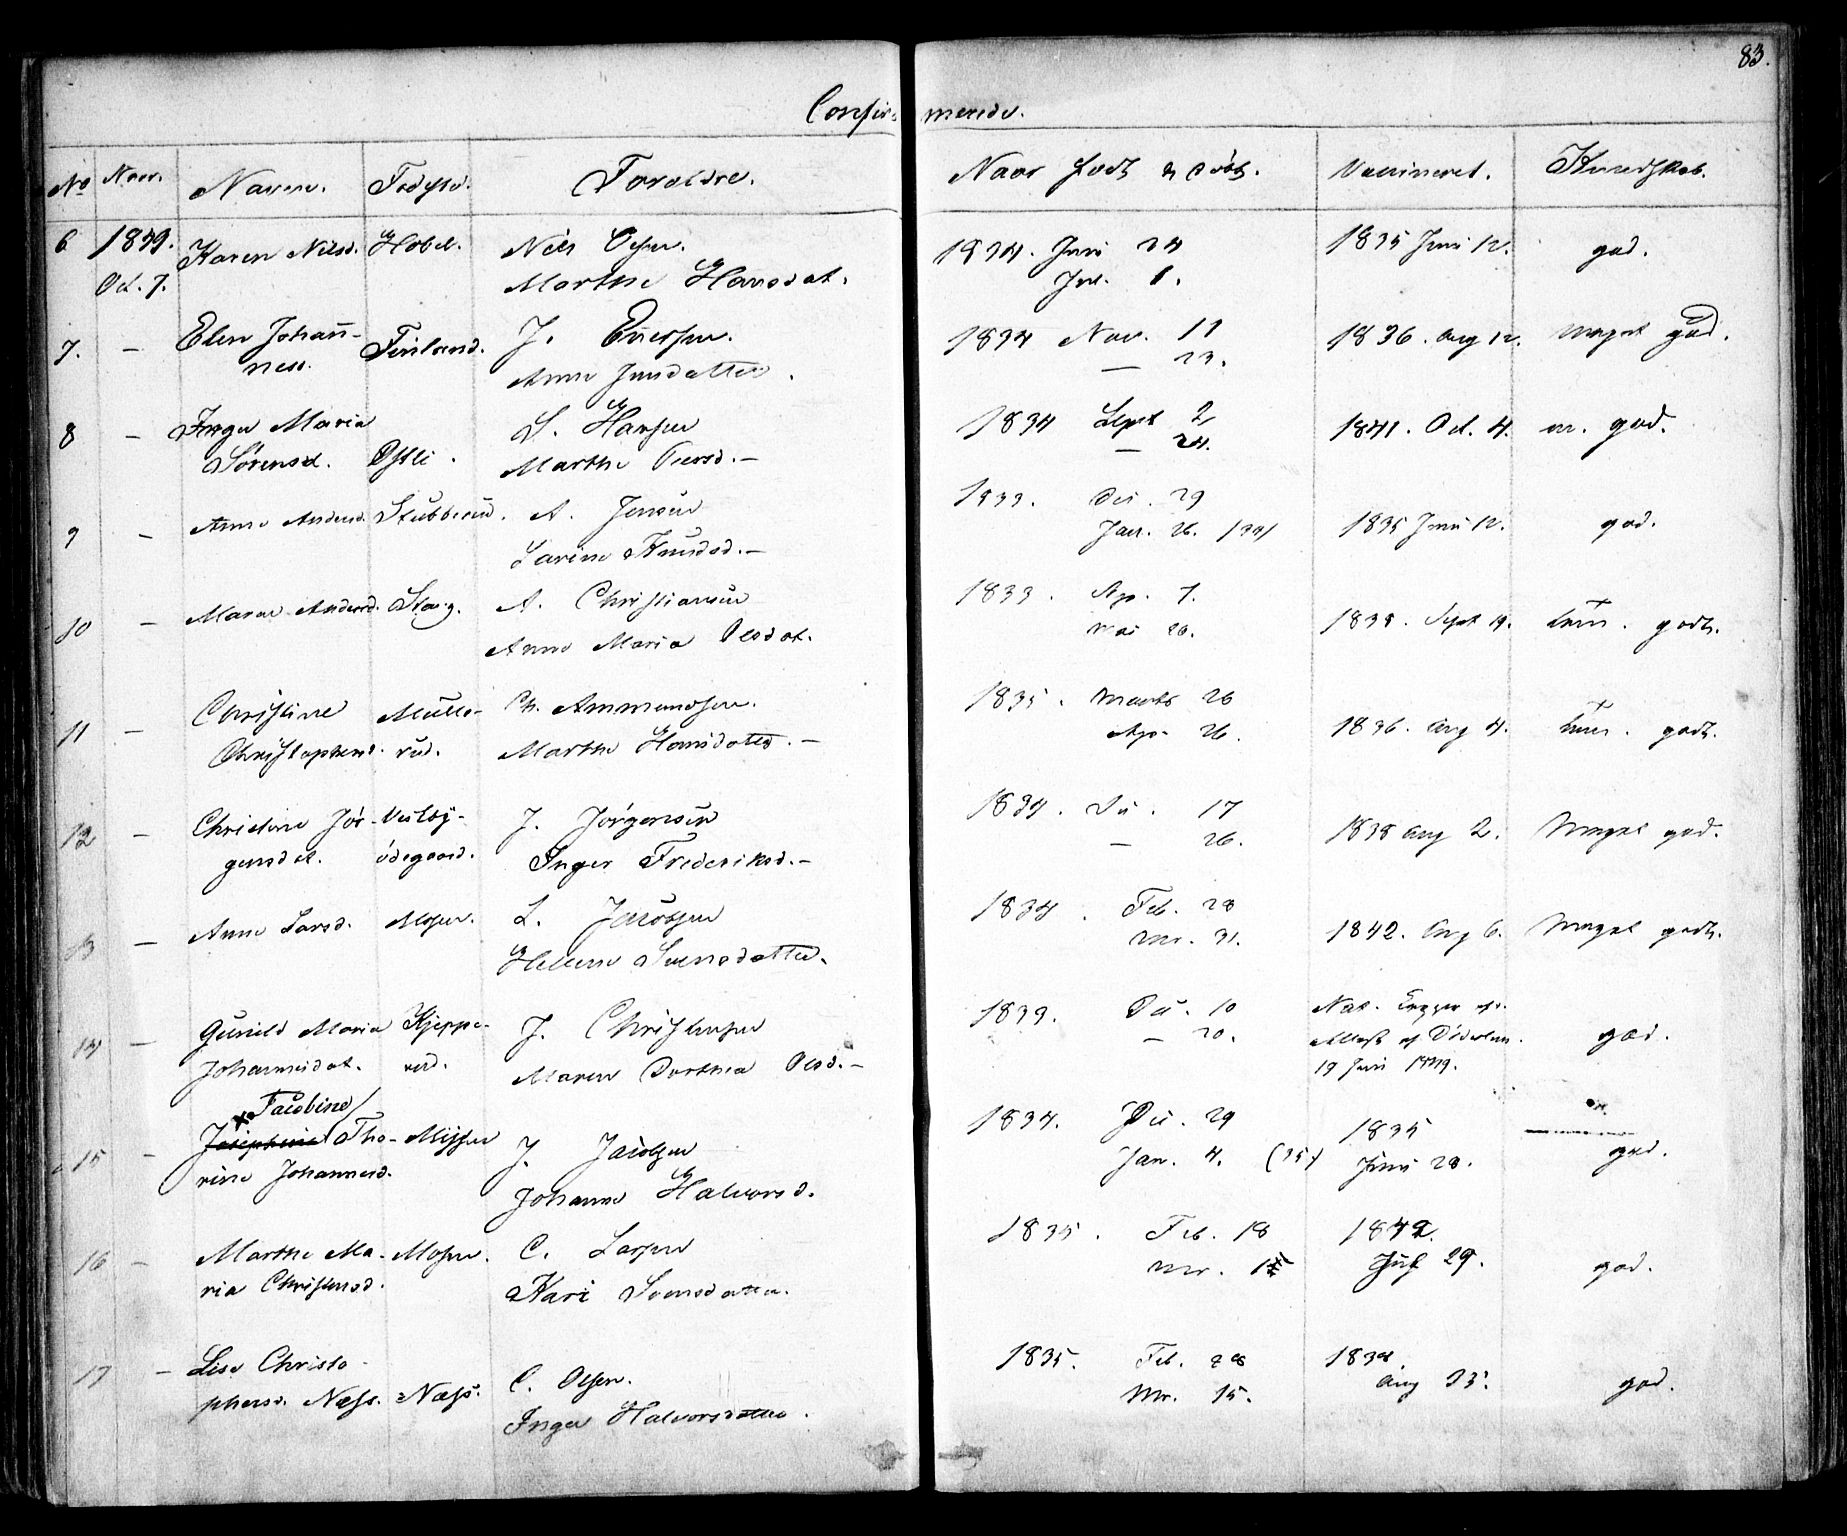 83.
Confirmerede.
No Naar. Navn. Fødested. Foreldre. Naar født & døbt. Vaccineret. Kundskab.
6 1849. Karen Nilsd. Hobel. Nils Olsen. 1834. Juni 24 1835 Juni 12. god.
Oct. 7. Marthe Hansdat. Jul. 1.
7. — Elen Johan- Finland. J. 1834 Nov. 11 1836. Aug 12. meget god.
ness. Anne Jensdatter. — 23.
8 — Inger Maria S. Hansen 1834 Sept 2 1841. Oct. 4. m. god.
Sørensd. Østli. Marthe Peersd. — — 24.
9 — Anne Andersd. Stubberud. A. Jensen 1833. Dec. 29 1835 Juni 12. god.
Larine Knudsd. — Jan. 26. (34)
10 — Maren Andersd. A. Christiansen 1833. Ap. 7. 1838. Sept 19. godt.
Anne Maria Olsdat. Mai 26.
11 — Christine Ch. Ammundsen. 1835. Marts 26 1836. Aug 4. godt.
Christophersd. rud. Marthe Hansdatter. — Ap. 26.
12 — Christine Jør- Vestby- J. Jørgensen 1834. De. 17 1838 Aug 2. Meget god.
gensdat. ödegaard. Inger Frederiksd. — — 26.
13 — Anne Larsd. Mosen. L. Jacobsen 1834. Feb. 28 1842. Aug 6. Meget godt.
Helene Svensdatter. Mr. 31.
14 — Gunild Maria Kjeppe- J. Christensen 1833. De. 10 Nat.
Johannesdat. rud. Maren Dorthea Olsd. — — 20. Attest af god.
19 Juni 1849.
× Jacobine/
15 — Josephine Tho- J. Jacobsen 1834. De. 29 1835
rine Johannesd. Johanne Halvorsd. Jan. 4. (35) Juni 28. god.
16 — Marthe Ma- Mosen. C. Larsen 1835. Feb. 18 1842.
ria Christensd. Kari Svensdatter. Mr. 29. god.
17 — Lise Christo- 1835. Feb. 1838.
phersd. Næss. Næss. C. Olsen. Mr. 15. Aug 23. god.
Inger Halvorsdatter.